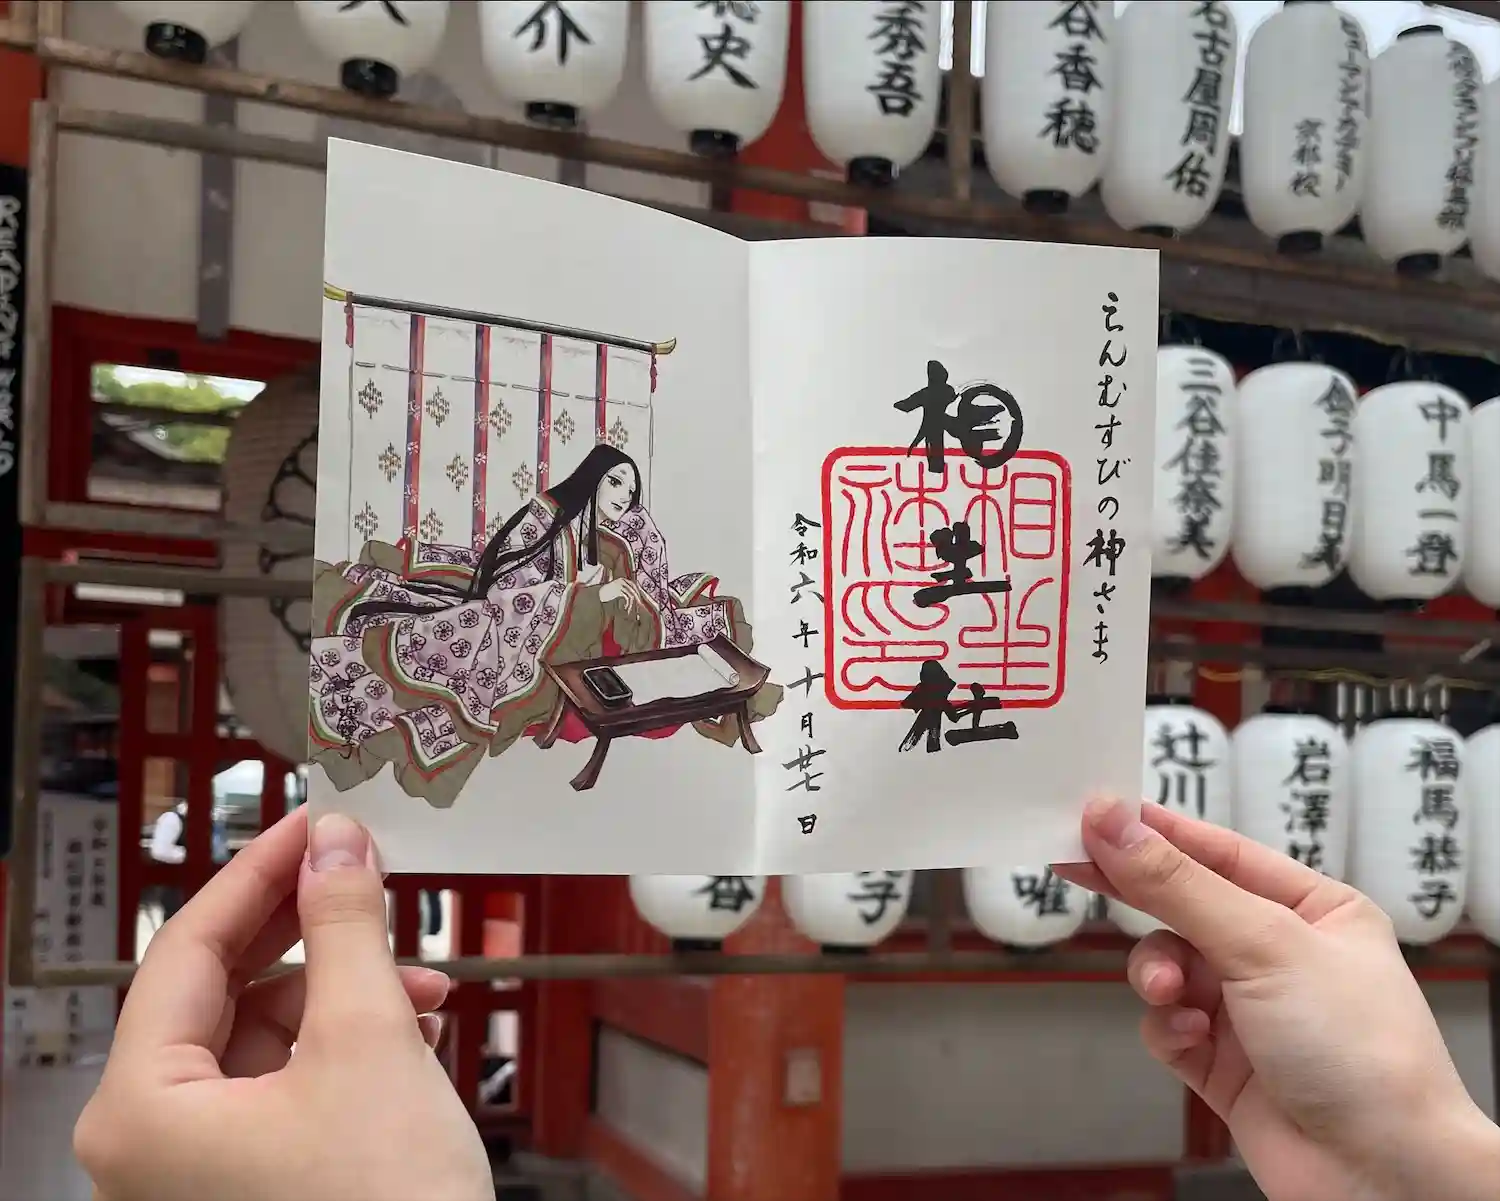 えんむすびの神さま
相生社
相生社印
令和六年十月廿七日
介
史
秀吾
谷香穂
名古屋周佑
ヒューマンアカデミー
京都校
三谷佳奈美
金子明日美
中馬一登
辻川
岩澤
福馬恭子
香
子
唯